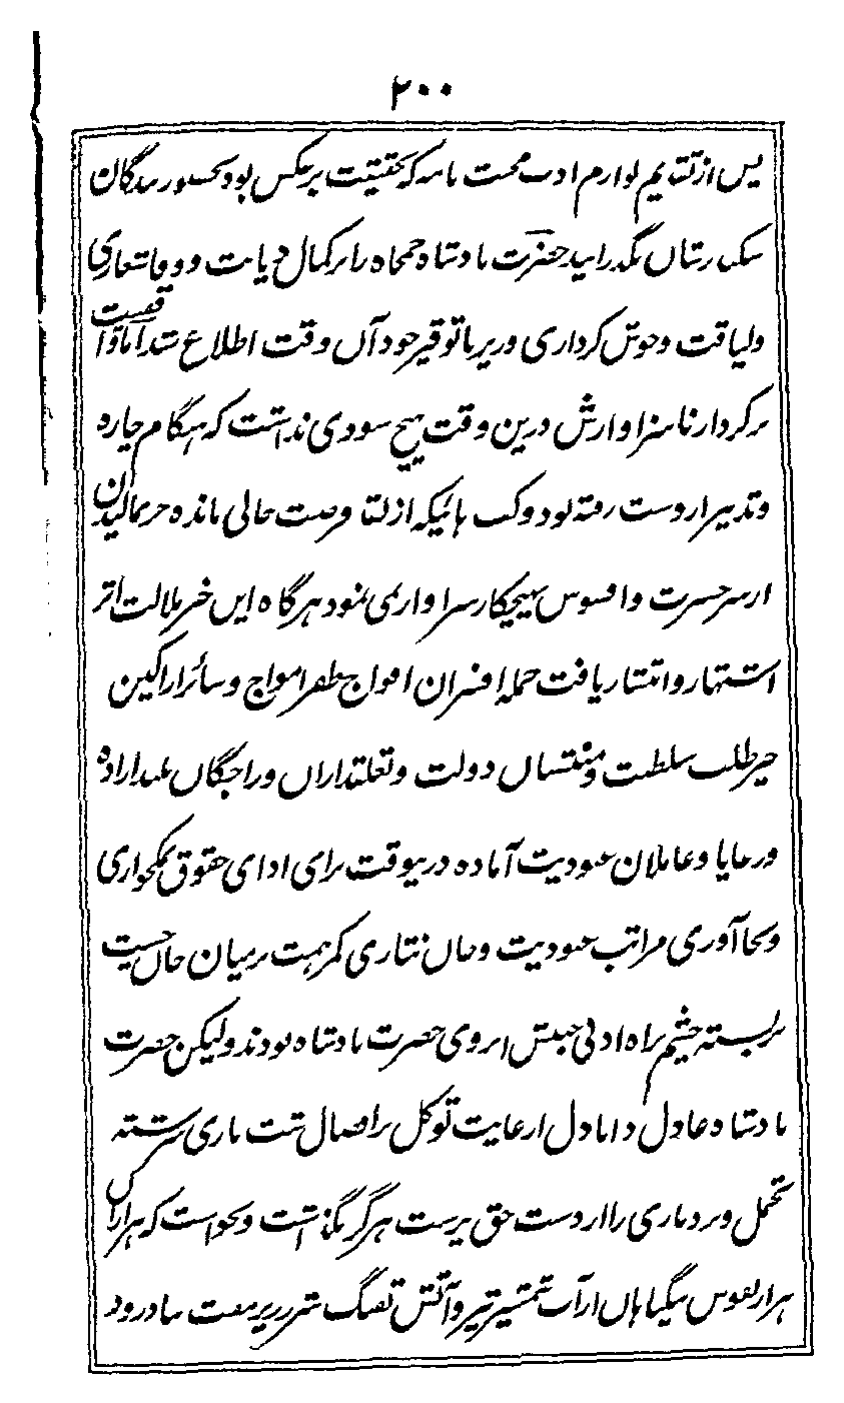 ۲۰۰
پس از تقدیم لوازم ادب محبت نامه که بحقیقت برعکس بود بحضور بندگان
سکندر شان بگذرانید حضرت بادشاه جمجاه را بر کمال دیانت و وفاشعاری
ولیاقت وخوش کرداری وزیر باتوقیر خود آن وقت اطلاع شد اما واقفیت
بر کردار ناسزاوارش درین وقت هیچ سودی نداشت که هنگام چاره
وتدبیر از دست رفته بود وکسی باینکه از لقا وصت خالی مانده جز نالیدن
از سر حسرت وافسوس بهیچکار سزاوار نمی نمود هرگاه این خبر ملالت اثر
اشتهار وانتشار یافت جمله افسران افواج ظفر امواج وسائر اراکین
خیرطلب سلطنت ومنتسبان دولت وتعلقداران وراجگان بلند اراده
ورعایا وعاملان عبودیت آماده درینوقت برای ادای حقوق نمکخواری
وبجا آوری مراتب عبودیت وجان نثاری کمر همت برمیان جان چست
بربسته چشم براه ادنی جنبش ابروی حضرت بادشاه بودند ولیکن حضرت
بادشاه عادل دانادل از عایت توکل بر افضال باری سررشته
تحمل وبردباری را از دست حق پرست هرگز نگذاشت ونخواست که هزاران
هزار نفوس بیگناهان از آب شمشیر تیز وآتش تفنگ شرر ریز مفت بباد رود